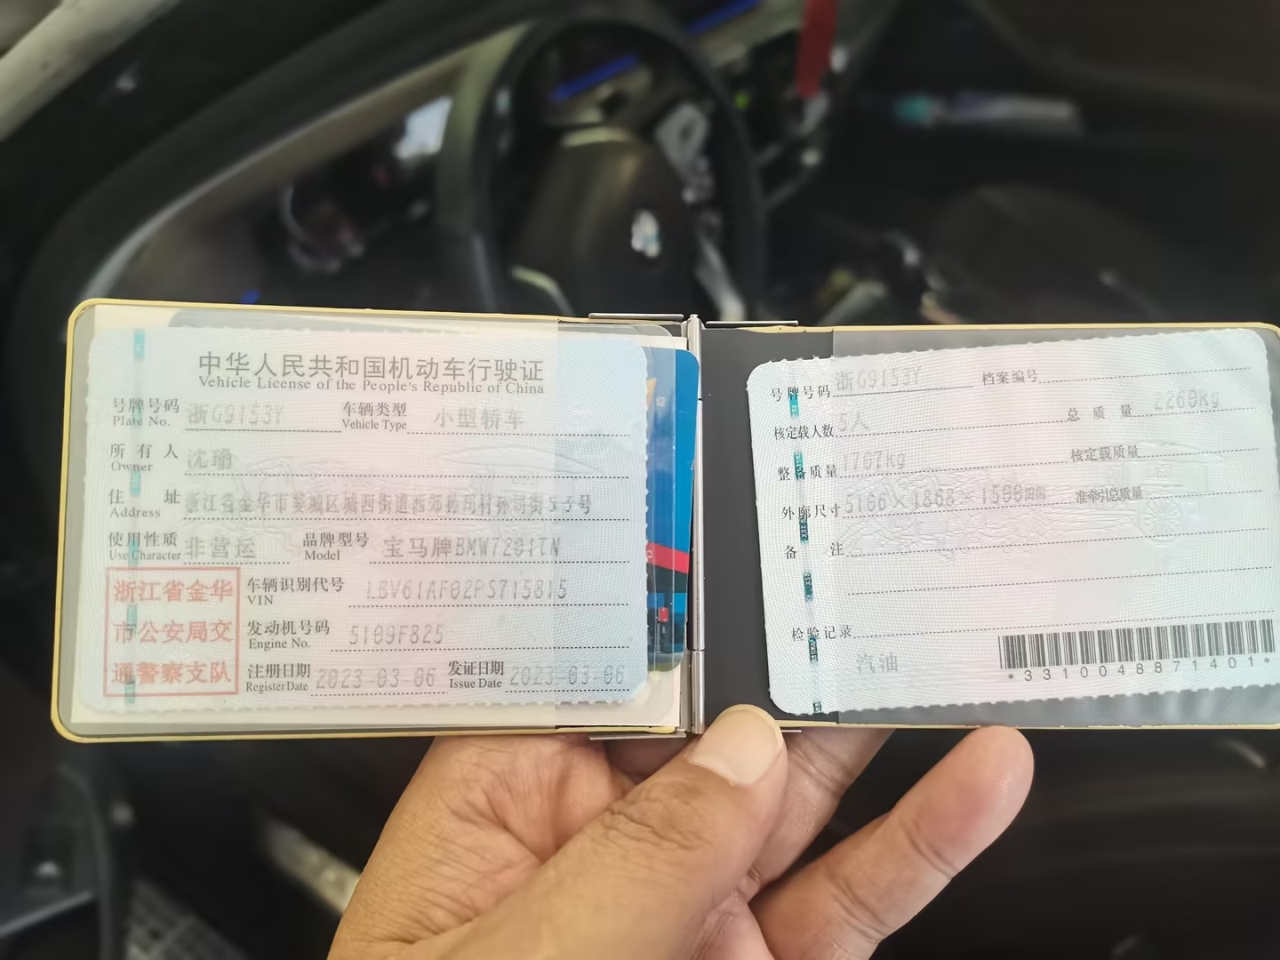 中华人民共和国机动车行驶证
Vehicle License of the People's Republic of China
号牌号码 浙G9153Y 车辆类型 小型轿车
Plate No. Vehicle Type
所有人 沈瑜
Owner
住址 浙江省金华市婺城区城西街道西郊孙司村孙司街53号
Address
使用性质 非营运 品牌型号 宝马牌BMW7201TN
Use Character Model
浙江省金华
市公安局交
通警察支队
车辆识别代号 LBV61AF02PS715815
VIN
发动机号码 5109F825
Engine No.
注册日期 2023-03-06 发证日期 2023-03-06
Register Date Issue Date
号牌号码 浙G9153Y 档案编号
核定载人数 5人 总质量 2260kg
整备质量 1707kg 核定载质量
外廓尺寸 5106×1868×1500mm 准牵引总质量
备注
检验记录
汽油
*3310048871401*